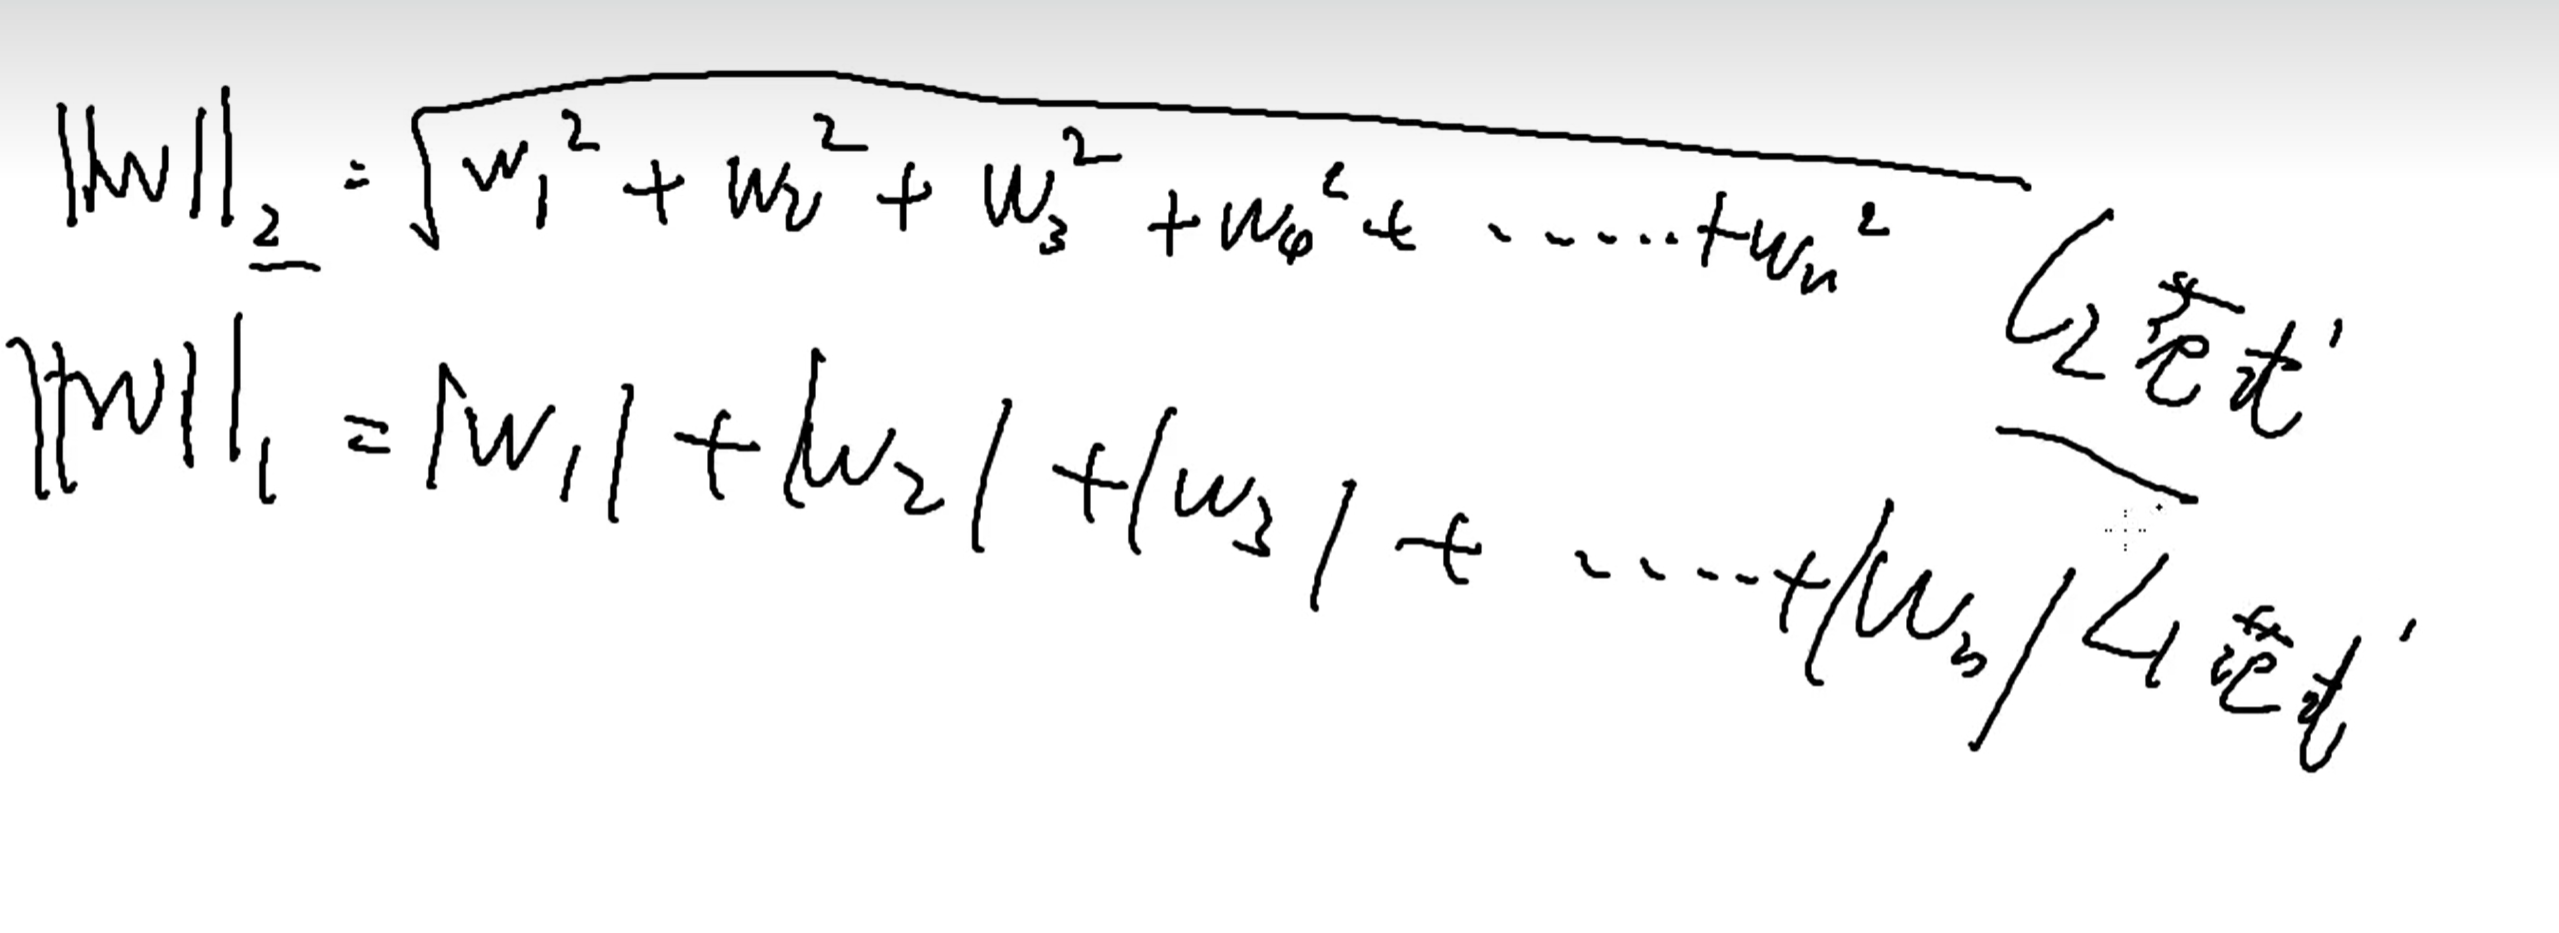 ||W||₂ = √(w₁² + w₂² + w₃² + w₄² + ······ + wₙ²) L₂范式
||W||₁ = |w₁| + |w₂| + |w₃| + ····· + |wₙ| L₁范式